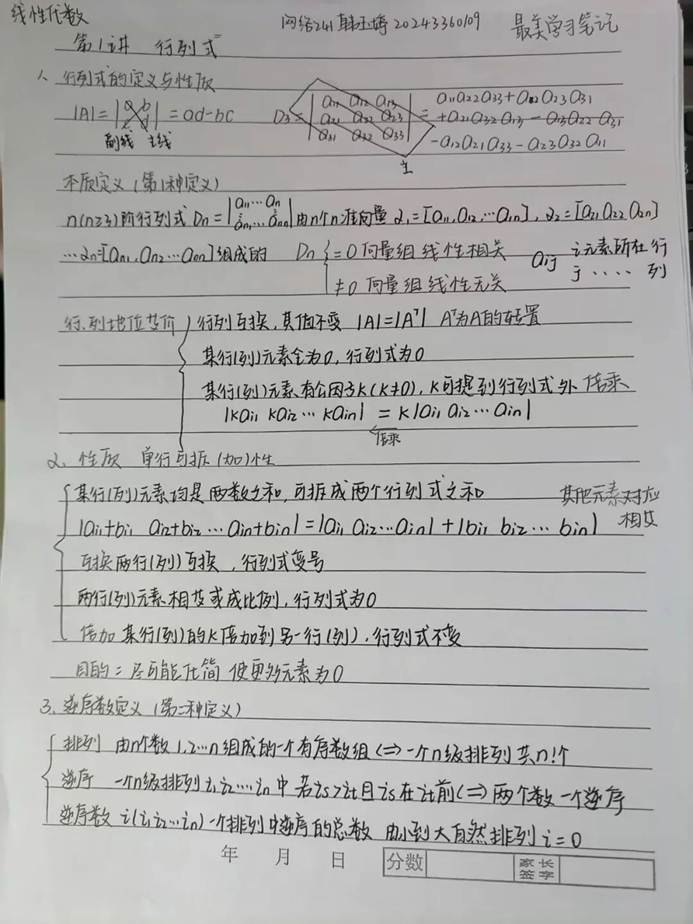 线性代数
网络241 韩玉婷 20243360109 最美学习笔记
第1讲 行列式
1、行列式的定义与性质
|A|=|a b c d|=ad-bc
副线 主线
D3=|a11 a12 a13 a21 a22 a23 a31 a32 a33|=a11a22a33+a12a23a31
+a21a32a13-a13a22a31
-a12a21a33-a23a32a11
主
本质定义(第1种定义)
n(n≥3)阶行列式 Dn=|a11…a1n ⋮ an1…ann|由n个n维向量α1=[a11,a12,…a1n],α2=[a21 a22 a2n]
…αn=[an1,an2…ann]组成的 Dn {=0 向量组线性相关
≠0 向量组线性无关
aij i元素所在行
j …… 列
行.列地位等价 { 行列互换,其值不变 |A|=|Aᵀ| Aᵀ为A的转置
某行(列)元素全为0,行列式为0
某行(列)元素有公因子k(k≠0),k可提到行列式外 倍乘
|kai1 kai2 … kain| = k|ai1 ai2…ain|
倍乘
2、性质 单行可拆(加)性
某行(列)元素均是两数之和,可拆成两个行列式之和 其他元素对应
|ai1+bi1 ai2+bi2 …ain+bin|=|ai1 ai2…ain|+|bi1 bi2… bin| 相等
互换两行(列)互换,行列式变号
两行(列)元素相等或成比例,行列式为0
倍加 某行(列)的k倍加到另一行(列),行列式不变
目的:尽可能化简 使更多元素为0
3、逆序数定义(第二种定义)
排列 由n个数1,2…n组成的一个有序数组⇔一个n级排列 共n!个
逆序 一个n级排列i1i2…in中若is>it且is在it前⇔两个数一个逆序
逆序数 i(i1i2…in)一个排列中逆序的总数 由小到大自然排列i=0
年 月 日 分数 家长签字